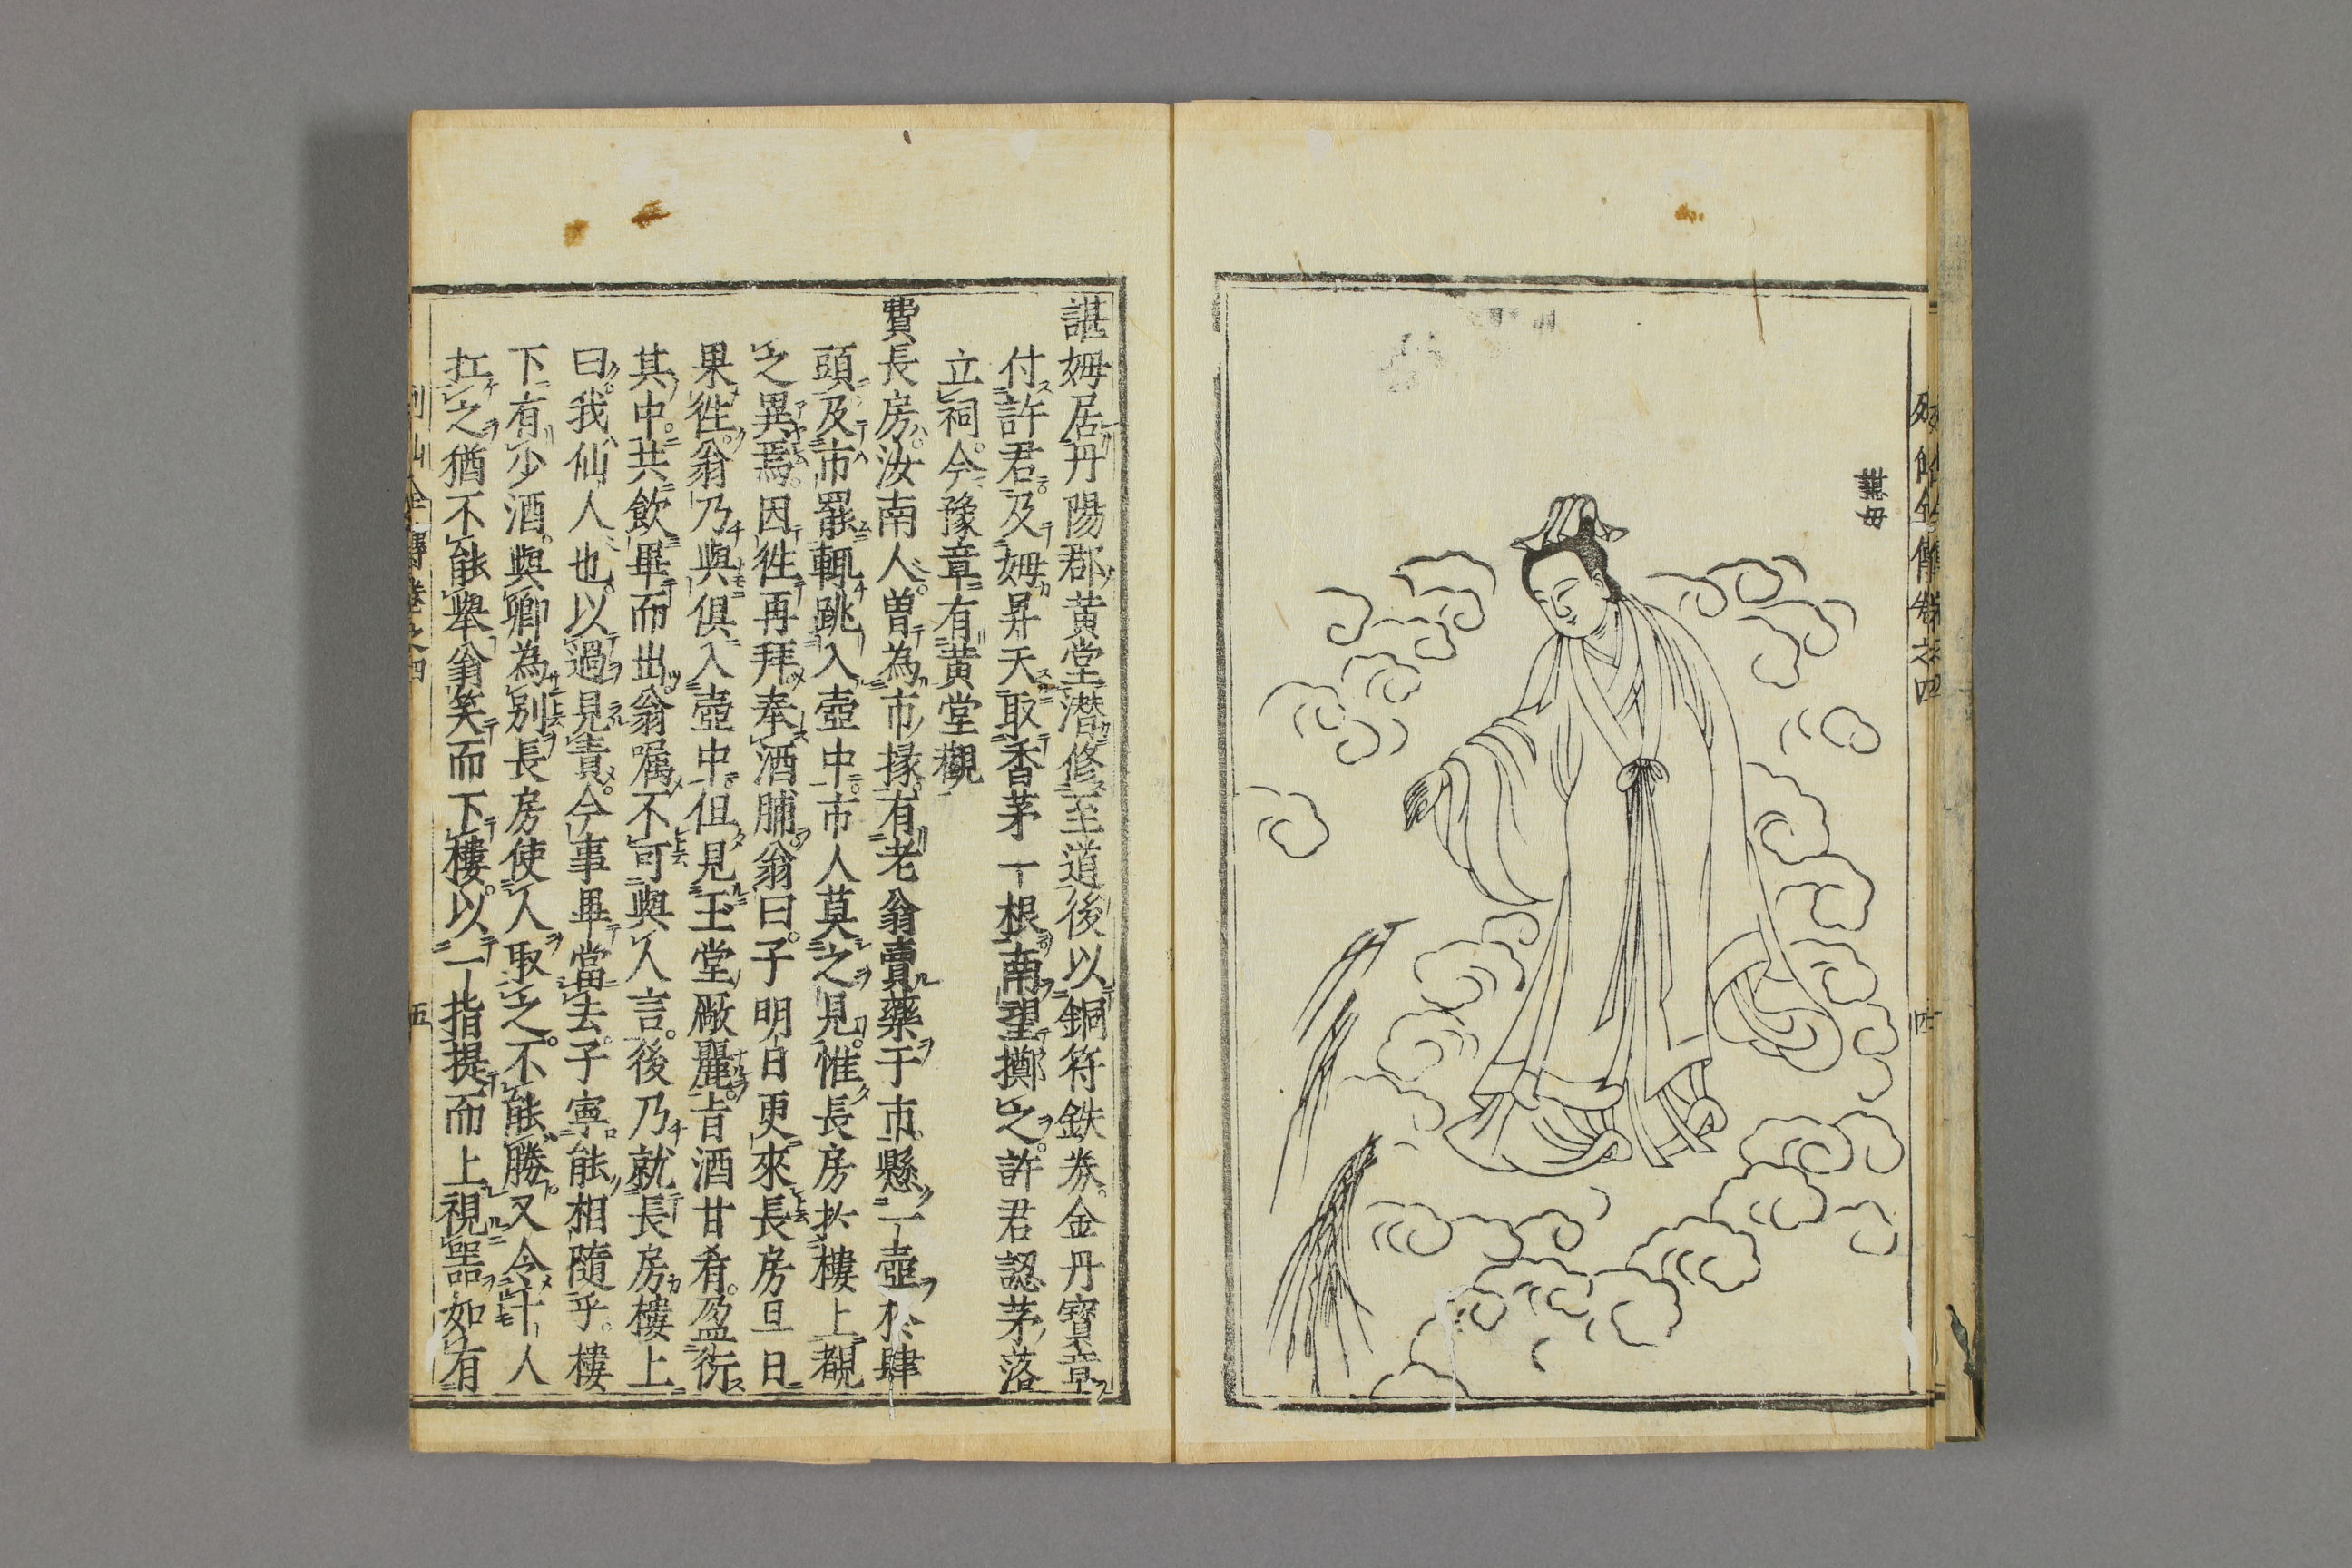 諶母
列仙全傳卷之四
四
諶姆居丹陽郡黄堂潜修至道後以銅符鉄券金丹寳章
付許君及姆昇天取香茅一根南望擲之許君認茅落
立祠今豫章有黄堂觀
費長房汝南人曽為市掾有老翁賣藥于市懸一壺於肆
頭及市罷輒跳入壺中市人莫之見惟長房於樓上覩
之異焉因徃再拜奉酒脯翁曰子明日更來長房旦日
果徃翁乃與俱入壺中但見玉堂厰麗旨酒甘肴盈衍
其中共飲畢而出翁嘱不可與人言後乃就長房樓上
曰我仙人也以過見責今事畢當去子寧能相隨乎樓
下有少酒與卿為别長房使人取之不能勝又令十人
扛之猶不能舉翁笑而下樓以一指提而上視噐如有
列仙全傳卷之四
五